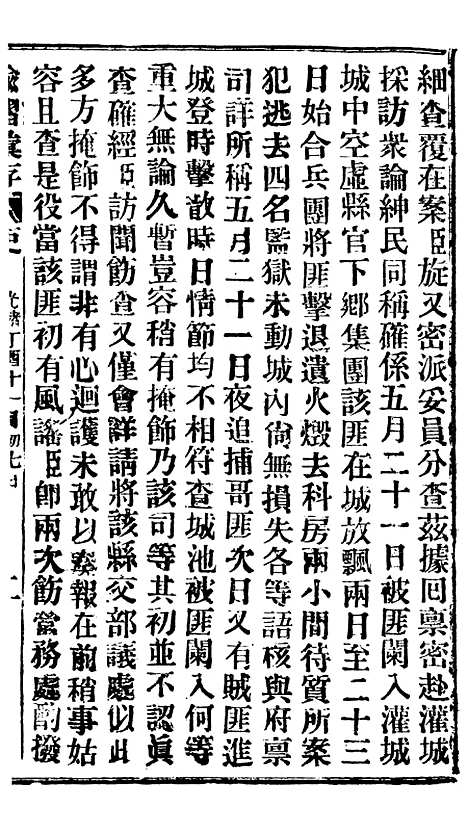 細查覆在案臣旋又密派妥員分查茲據回稟密赴灌城
採訪衆論紳民同稱確係五月二十一日被匪闌入灌城
城中空虛縣官下鄉集團該匪在城放飄兩日至二十三
日始合兵團將匪擊退遺火燬去科房兩小間待質所案
犯逃去四名監獄未動城內尙無損失各等語核與府稟
司詳所稱五月二十一日夜追捕哥匪次日又有賊匪進
城登時擊散時日情節均不相符查城池被匪闌入何等
重大無論久暫豈容稍有掩飾乃該司等其初並不認眞
查確經臣訪聞飭查又僅會詳請將該縣交部議處似此
多方掩飾不得謂非有心迴護未敢以奏報在前稍事姑
容且查是役當該匪初有風謠臣卽兩次飭營務處酌撥
諭摺彙存
光緒丁酉十一月初七日